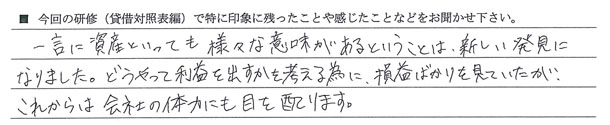 ■ 今回の研修（貸借対照表編）で特に印象に残ったことや感じたことなどをお聞かせ下さい。
一言に資産といっても様々な意味があるということは、新しい発見に
なりました。どうやって利益を出すかを考える為に、損益ばかりを見ていたが、
これからは会社の体力にも目を配ります。